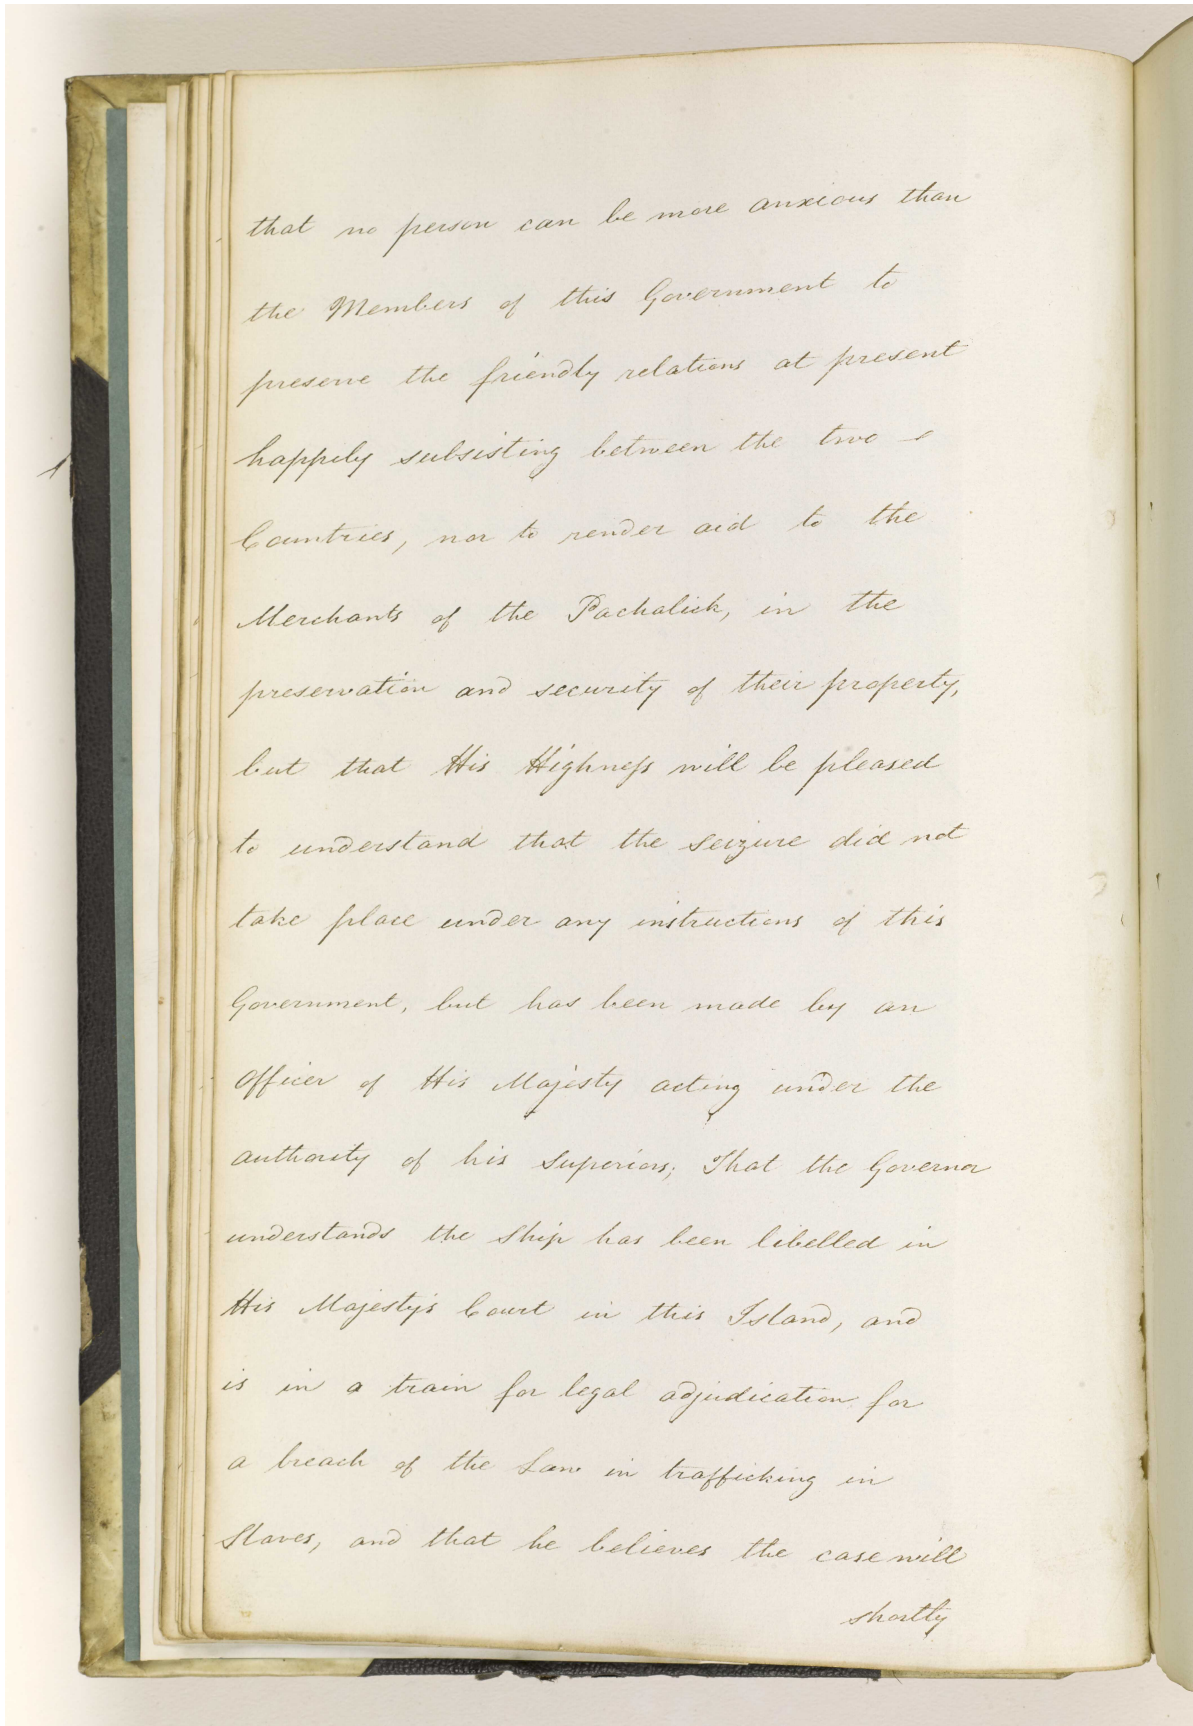 that no person can be more anxious than
the Members of this Government to
preserve the friendly relations at present
happily subsisting between the two
Countries, nor to render aid to the
Merchants of the Pachalick, in the
preservation and security of their property,
but that His Highness will be pleased
to understand that the seizure did not
take place under any instructions of this
Government, but has been made by an
Officer of His Majesty acting under the
authority of his Superiors; That the Governor
understands the Ship has been libelled in
His Majesty's Court in this Island, and
is in a train for legal adjudication for
a breach of the Law in trafficking in
Slaves, and that he believes the case will
shortly